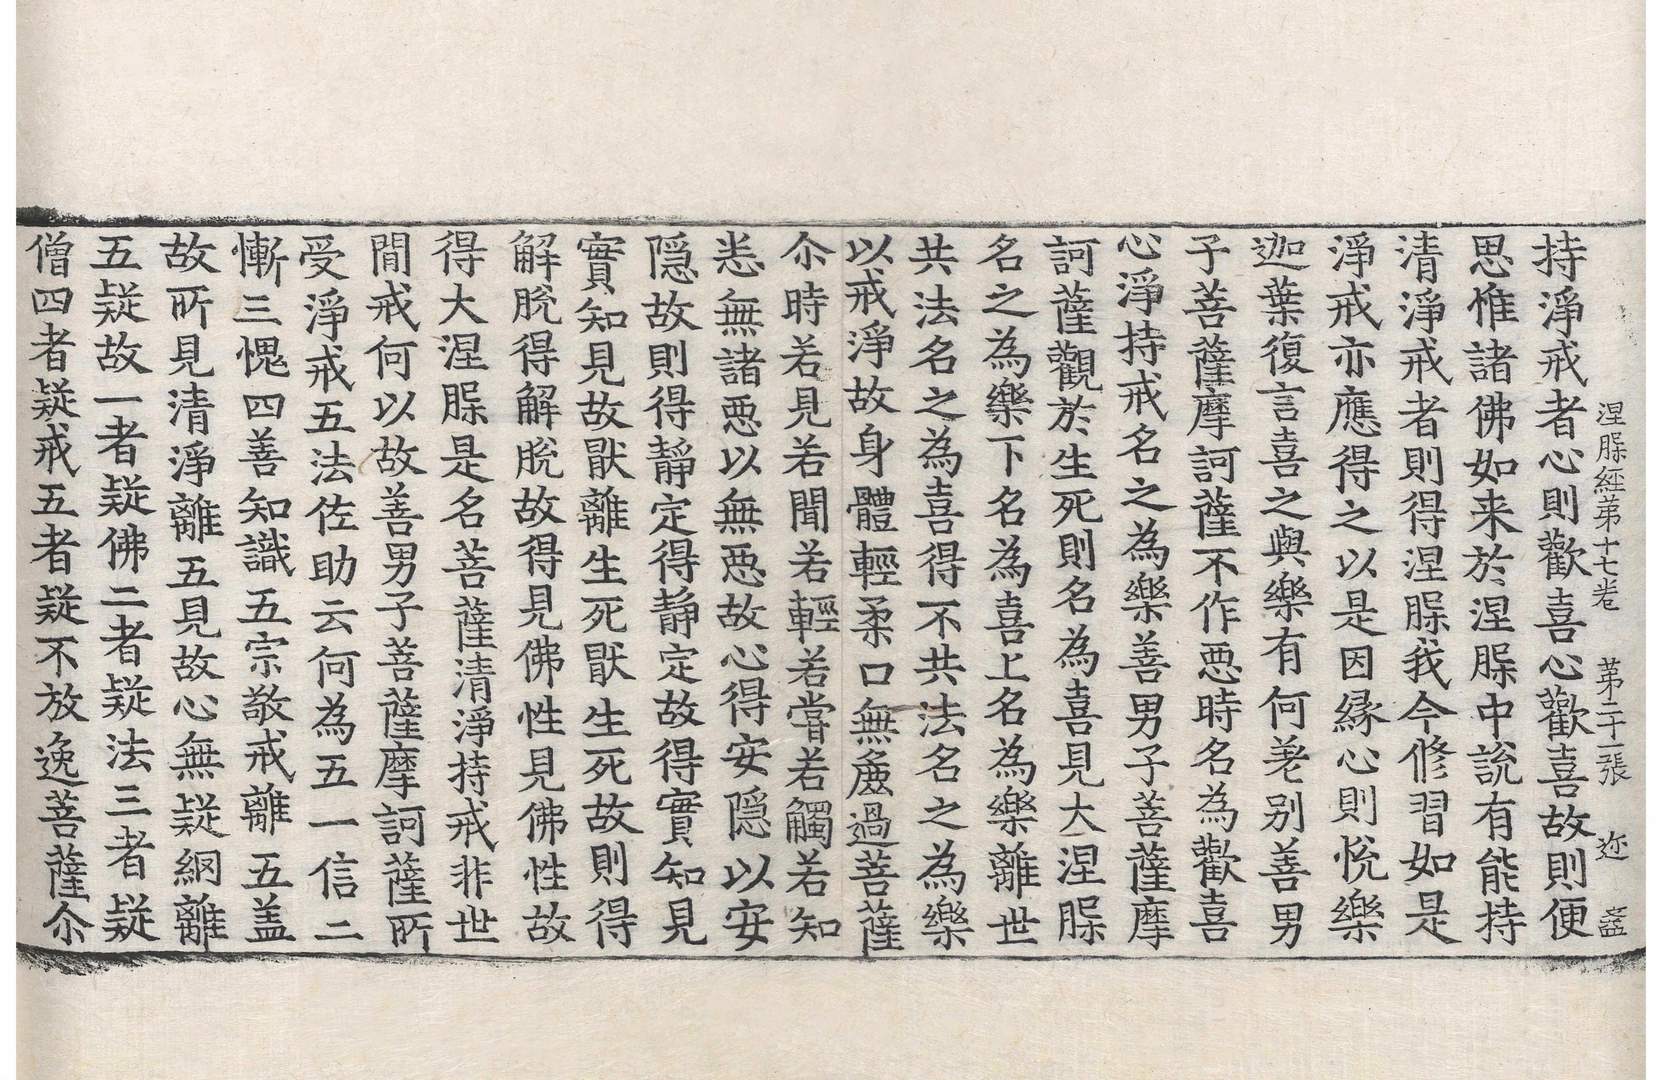 涅槃經第十七卷 第二十一張 迩
持淨戒者心則歡喜心歡喜故則便
思惟諸佛如来於涅槃中說有能持
清淨戒者則得涅槃我今修習如是
淨戒亦應得之以是因縁心則悅樂
迦葉復言喜之與樂有何差别善男
子菩薩摩訶薩不作惡時名為歡喜
心淨持戒名之為樂善男子菩薩摩
訶薩觀於生死則名為喜見大涅槃
名之為樂下名為喜上名為樂離世
共法名之為喜得不共法名之為樂
以戒淨故身體輕柔口無麁過菩薩
尒時若見若聞若輕若嘗若觸若知
悉無諸惡以無惡故心得安隱以安
隱故則得靜定得靜定故得實知見
實知見故猒離生死猒生死故則得
解脫得解脫故得見佛性見佛性故
得大涅槃是名菩薩清淨持戒非世
間戒何以故善男子菩薩摩訶薩所
受淨戒五法佐助云何為五一信二
慚三愧四善知識五宗敬戒離五盖
故所見清淨離五見故心無疑網離
五疑故一者疑佛二者疑法三者疑
僧四者疑戒五者疑不放逸菩薩尒